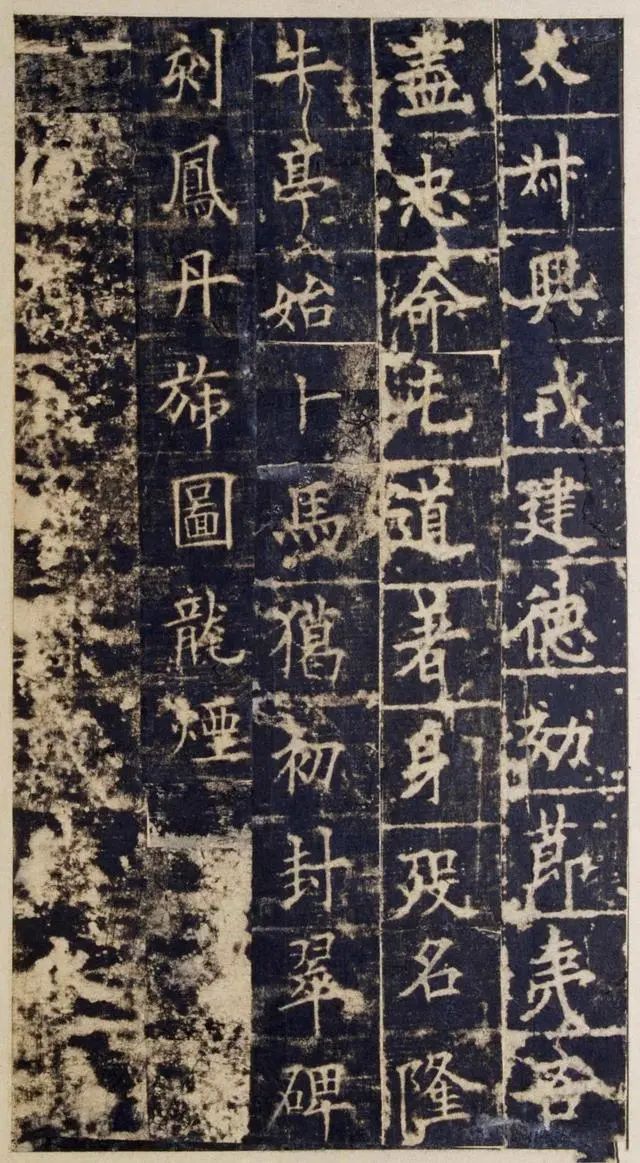 太叔興戎建德効節夷吾
盡忠命屯道著身殁名隆
牛亭始卜馬鬣初封翠碑
刻鳳丹旐圖龍煙